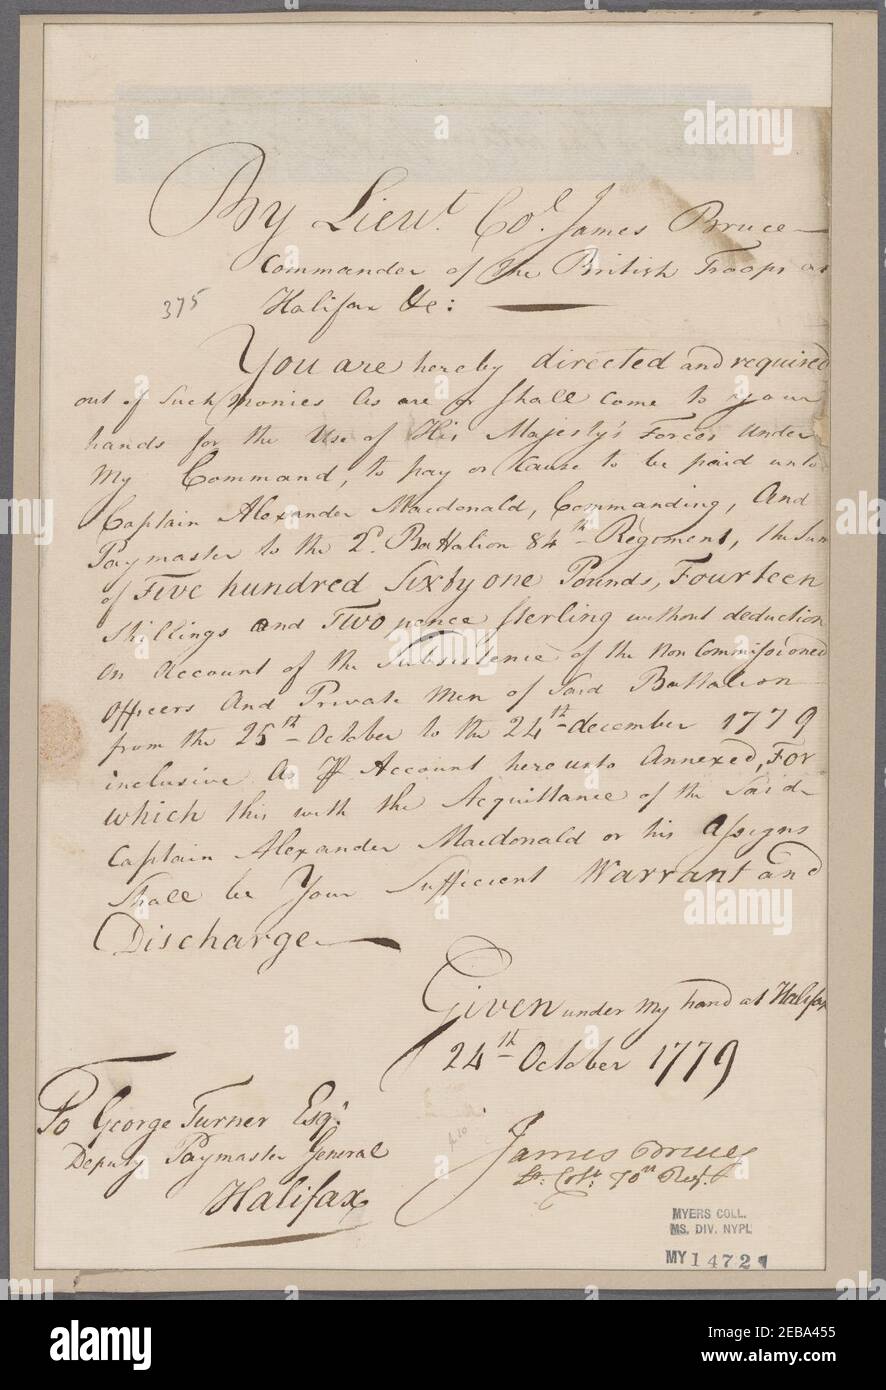 By Lieut. Col. James Bruce
Commander of the British Troops at
Halifax &c:
375
You are hereby directed and required
out of Such monies As are or shall come to your
hands for the Use of His Majesty's Forces Under
My Command, to pay or Cause to be paid unto
Captain Alexander Macdonald, Commanding, And
Paymaster to the 2d. Battalion 84th Regiment, the Sum
of Five hundred Sixty one Pounds, Fourteen
Shillings and Two pence sterling without deduction
On Account of the Subsistence of the Non Commissioned
Officers And Private Men of Said Battalion
from the 25th October to the 24th december 1779
inclusive As P Account hereunto Annexed, For
which this with the Acquittance of the Said
Captain Alexander Macdonald or his Assigns
Shall be Your Sufficient Warrant and
Discharge
Given under my hand at Halifax
24th October 1779
To George Turner Esqr.
Deputy Paymaster General
Halifax
James Bruce
Lt. Col. 70th Regt.
MYERS COLL.
MS. DIV. NYPL
MY 14727
a
alamy
alamy
Image ID: 2EBA455
www.alamy.com